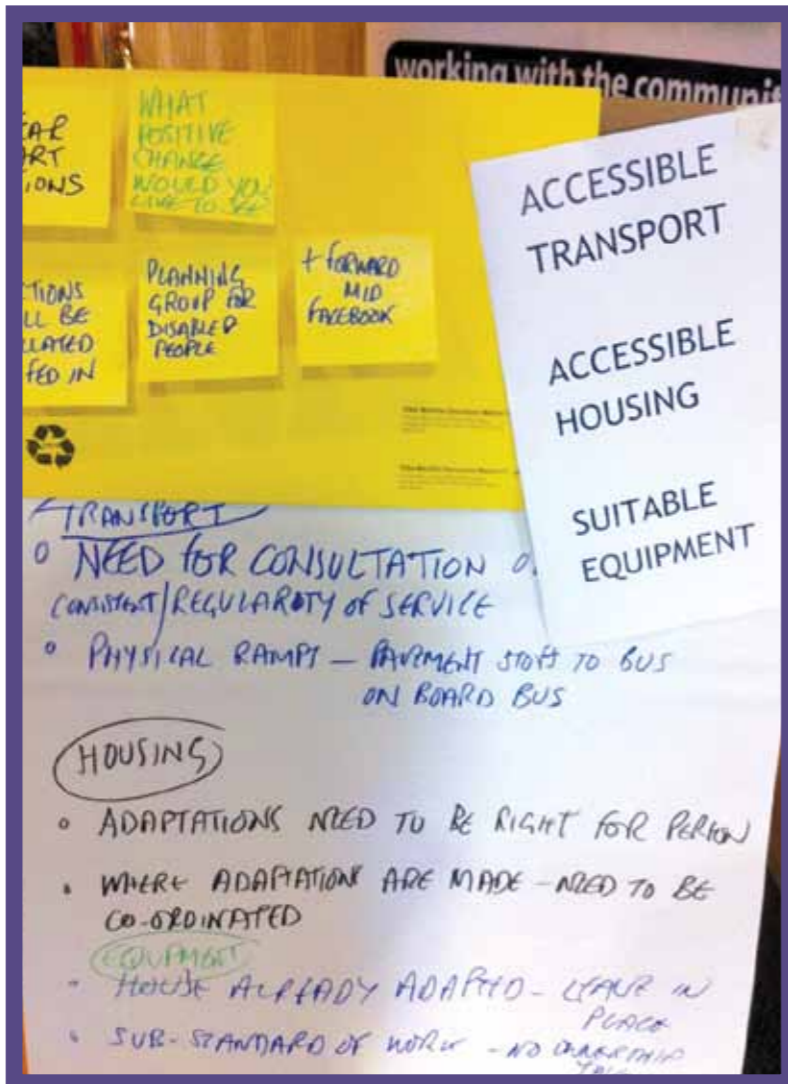 working with the communit
EAR
ART
IONS
WHAT
POSITIVE
CHANGE
WOULD YOU
LIKE TO SEE
TIONS
LL BE
LLATED
FED IN
PLANNING
GROUP FOR
DISABLED
PEOPLE
+ FORWARD
MID
FACEBOOK
ACCESSIBLE
TRANSPORT
ACCESSIBLE
HOUSING
SUITABLE
EQUIPMENT
TRANSPORT
NEED FOR CONSULTATION
CONSISTENT/REGULARITY OF SERVICE
PHYSICAL RAMPS – PAVEMENT STOPS TO BUS
ON BOARD BUS
HOUSING
ADAPTATIONS NEED TO BE RIGHT FOR PERSON
WHERE ADAPTATIONS ARE MADE – NEED TO BE
CO-ORDINATED
EQUIPMENT
HOUSE ALREADY ADAPTED – LEAVE IN
PLACE
SUB-STANDARD OF WORK – NO OWNERSHIP